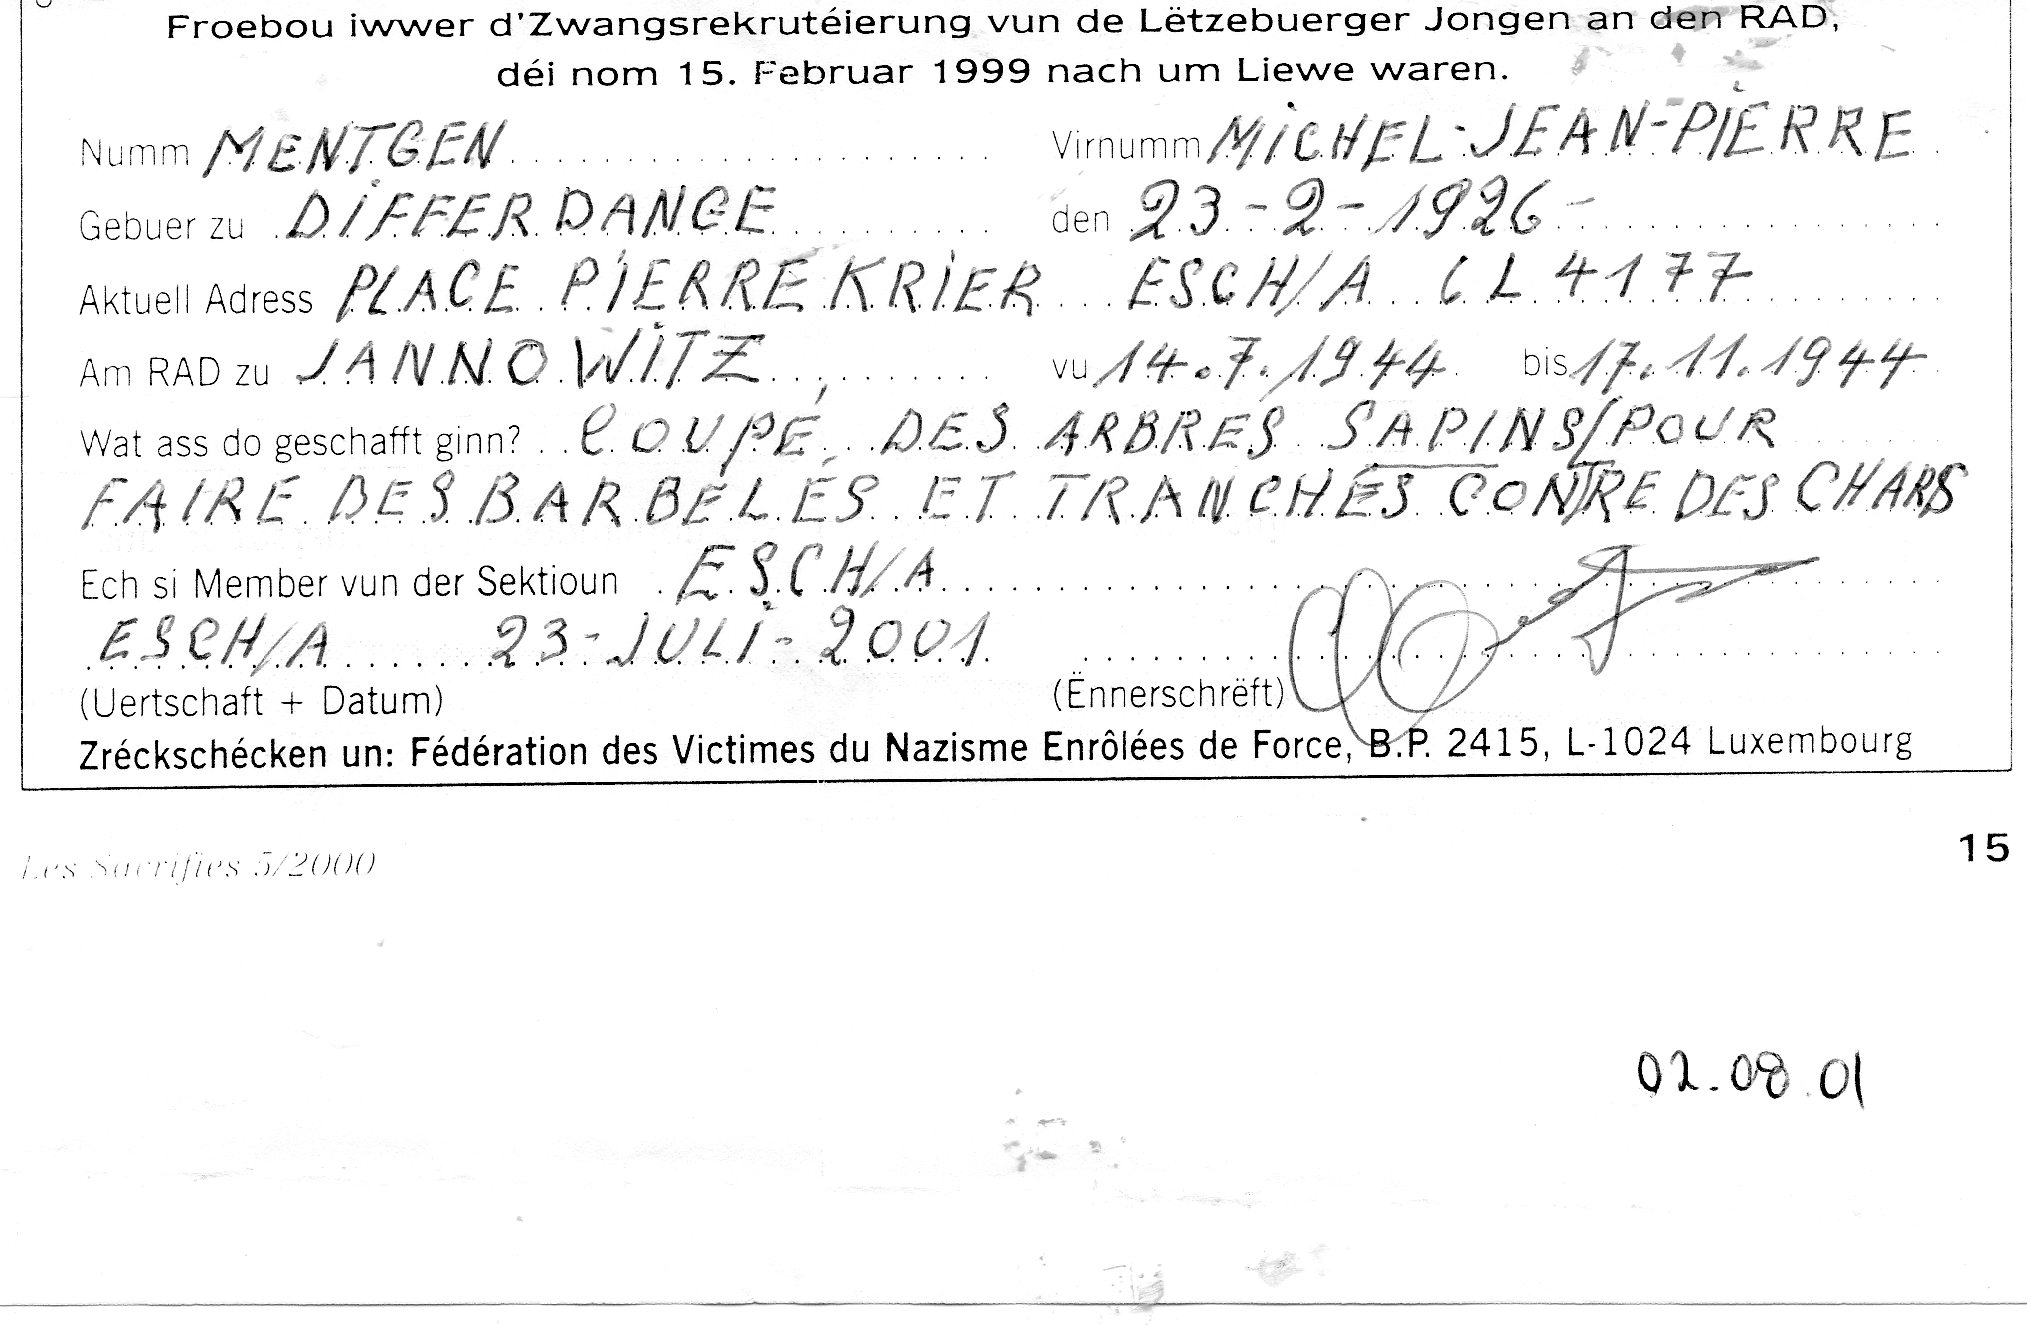 Froebou iwwer d'Zwangsrekrutéierung vun de Lëtzebuerger Jongen an den RAD,
déi nom 15. Februar 1999 nach um Liewe waren.
Numm MENTGEN Virnumm MICHEL-JEAN-PIERRE
Gebuer zu DIFFERDANGE den 23-2-1926-
Aktuell Adress PLACE PIERRE KRIER ESCH/A (L 4177
Am RAD zu JANNOWITZ vu 14.7.1944 bis 17.11.1944
Wat ass do geschafft ginn? COUPÉ DES ARBRES SAPINS/POUR
FAIRE DES BARBELÉS ET TRANCHÉS CONTRE DES CHARS
Ech si Member vun der Sektioun ESCH/A
ESCH/A 23-JULI-2001
(Uertschaft + Datum) (Ënnerschrëft)
Zréckschécken un: Fédération des Victimes du Nazisme Enrôlées de Force, B.P. 2415, L-1024 Luxembourg
Les Sacrifies 5/2000 15
02.08.01